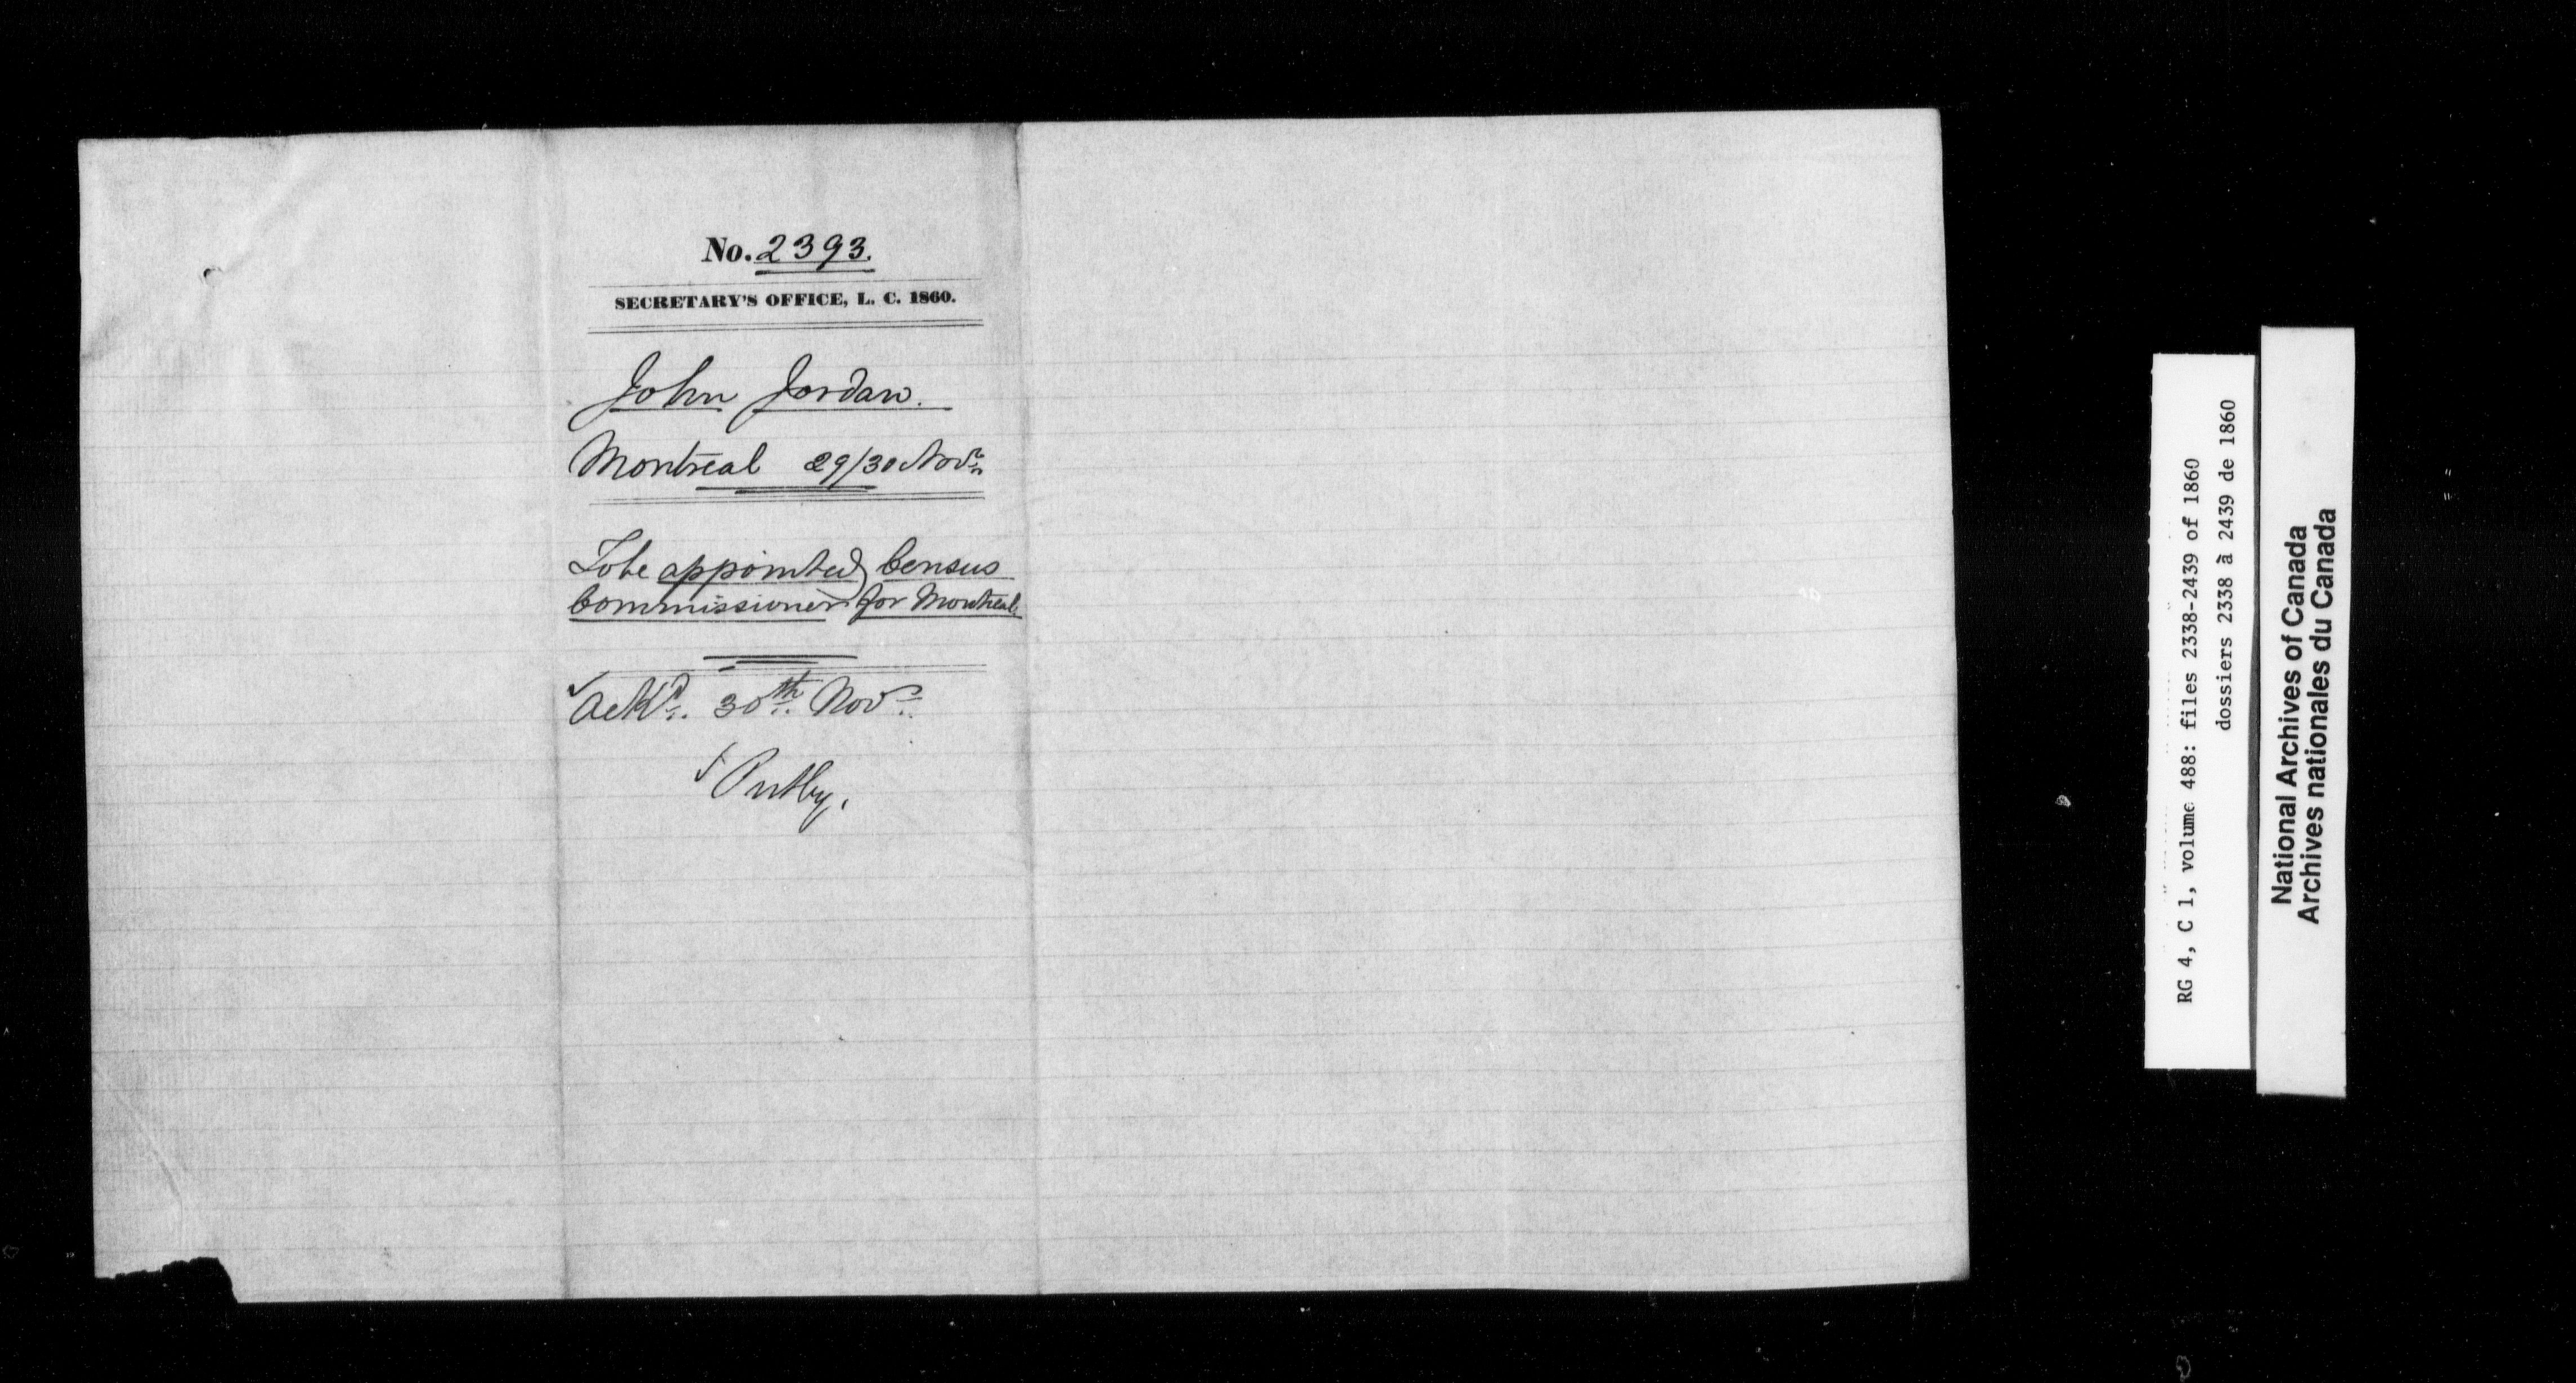 No. 2393.
SECRETARY'S OFFICE, L. C. 1860.
John Jordan.
Montreal 29/30 Novr.
To be appointed Census
Commissioner for Montreal.
Ackd. 30th Novr.
RG 4, C 1, volume 488: files 2338-2439 of 1860
dossiers 2338 à 2439 de 1860
National Archives of Canada
Archives nationales du Canada